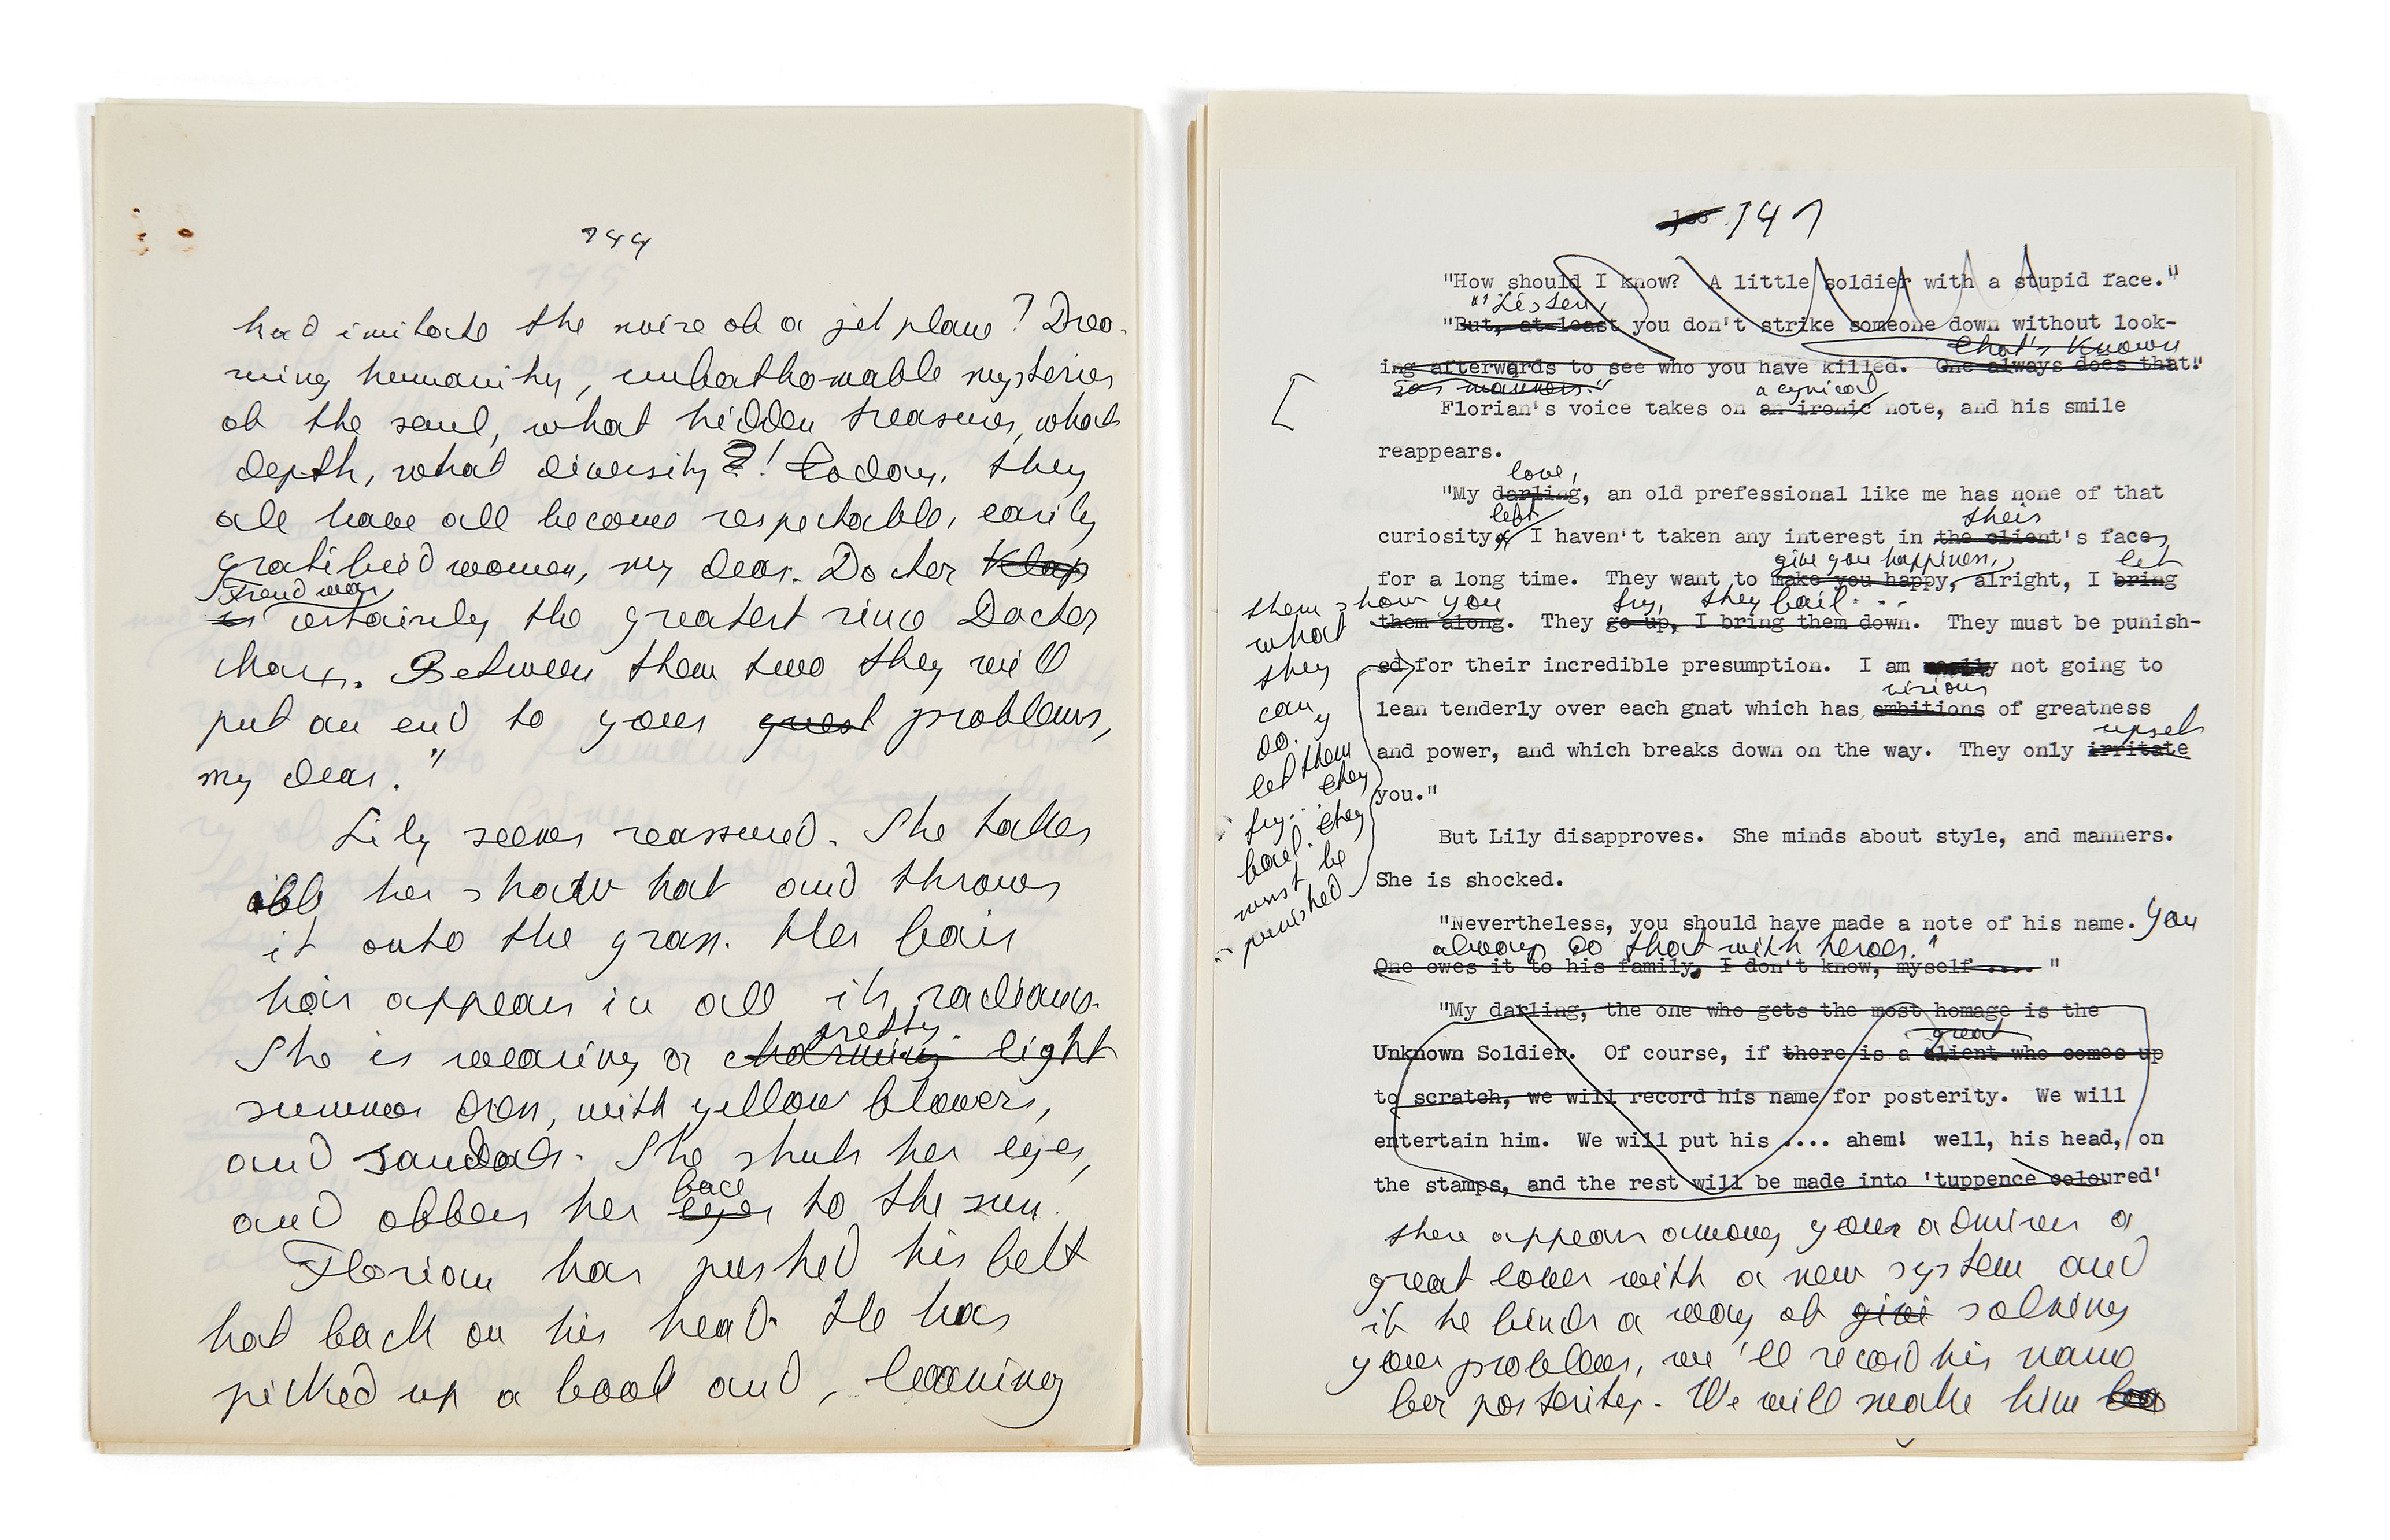 144
had imitate the noise of a jet plane? Drea-
ming humanity, unfathomable mysteries
of the soul, what hidden treasures, what
depth, what diversity?! Today, they
all have all become respectable, easily
gratified women, my dear. Doctor Klap
Freud was
is certainly the greatest since Doctor
Marx. Between them two they will
put an end to your quest problems,
my dear."
Lily seems reassured. She takes
off her straw hat and throws
it onto the grass. Her fair
hair appears in all its radiance.
pretty
She is wearing a charming light
summer dress, with yellow flowers,
and sandals. She shuts her eyes,
face
and offers her eyes to the sun.
Florian has pushed his felt
hat back on his head. He has
picked up a book and, leaning
188 147
"How should I know? A little soldier with a stupid face."
"Listen,
"But, at least you don't strike someone down without look-
that's known
ing afterwards to see who you have killed. One always does that."
as manners."
a cynical
Florian's voice takes on an ironic note, and his smile
reappears.
love,
"My darling, an old prefessional like me has none of that
left.
curiosity. I haven't taken any interest in the client's face,
their
give you happiness, let
for a long time. They want to make you happy, alright, I bring
them show you try, they fail...
them along. They go up, I bring them down. They must be punish-
ed for their incredible presumption. I am not going to
visions
lean tenderly over each gnat which has ambitions of greatness
upset
and power, and which breaks down on the way. They only irritate
you."
what
they
can
do.
let them
try.. they
fail. they
must be
punished
But Lily disapproves. She minds about style, and manners.
She is shocked.
"Nevertheless, you should have made a note of his name. You
always do that with heroes."
One owes it to his family, I don't know, myself .... "
"My darling, the one who gets the most homage is the
great
Unknown Soldier. Of course, if there is a client who comes up
to scratch, we will record his name for posterity. We will
entertain him. We will put his .... ahem! well, his head, on
the stamps, and the rest will be made into 'tuppence coloured'
there appears among your admirers a
great lover with a new system and
if he finds a way of givi solving
your problem, we'll record his name
for posterity. We will make him